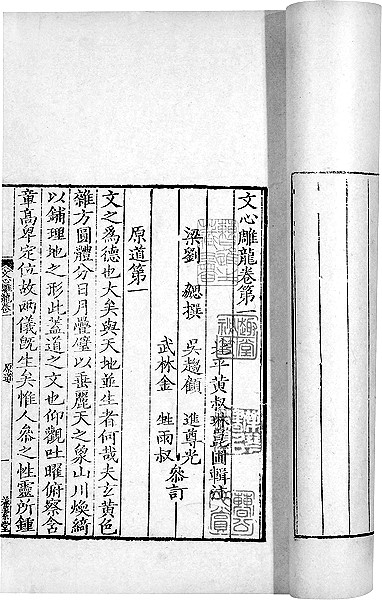 文心雕龍卷第一
平黃叔琳崑圃輯注
梁劉勰撰 吳趨顧進尊光
武林金甡雨叔
參訂
原道第一
文之爲德也大矣與天地並生者何哉夫玄黃色
雜方圓體分日月疊璧以垂麗天之象山川煥綺
以鋪理地之形此蓋道之文也仰觀吐曜俯察含
章高卑定位故兩儀旣生矣惟人參之性靈所鍾
文心雕龍卷一
原道
一